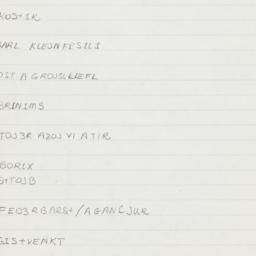 KOSTIK
ARL KLEJNFESILI
OST A GROJSLLEFL
BRINIMS
TOJ3R AZOJ VI A TIR
BORIX
STOJB
FEO3RBARST/AGANCJUR
GIS+VENKT